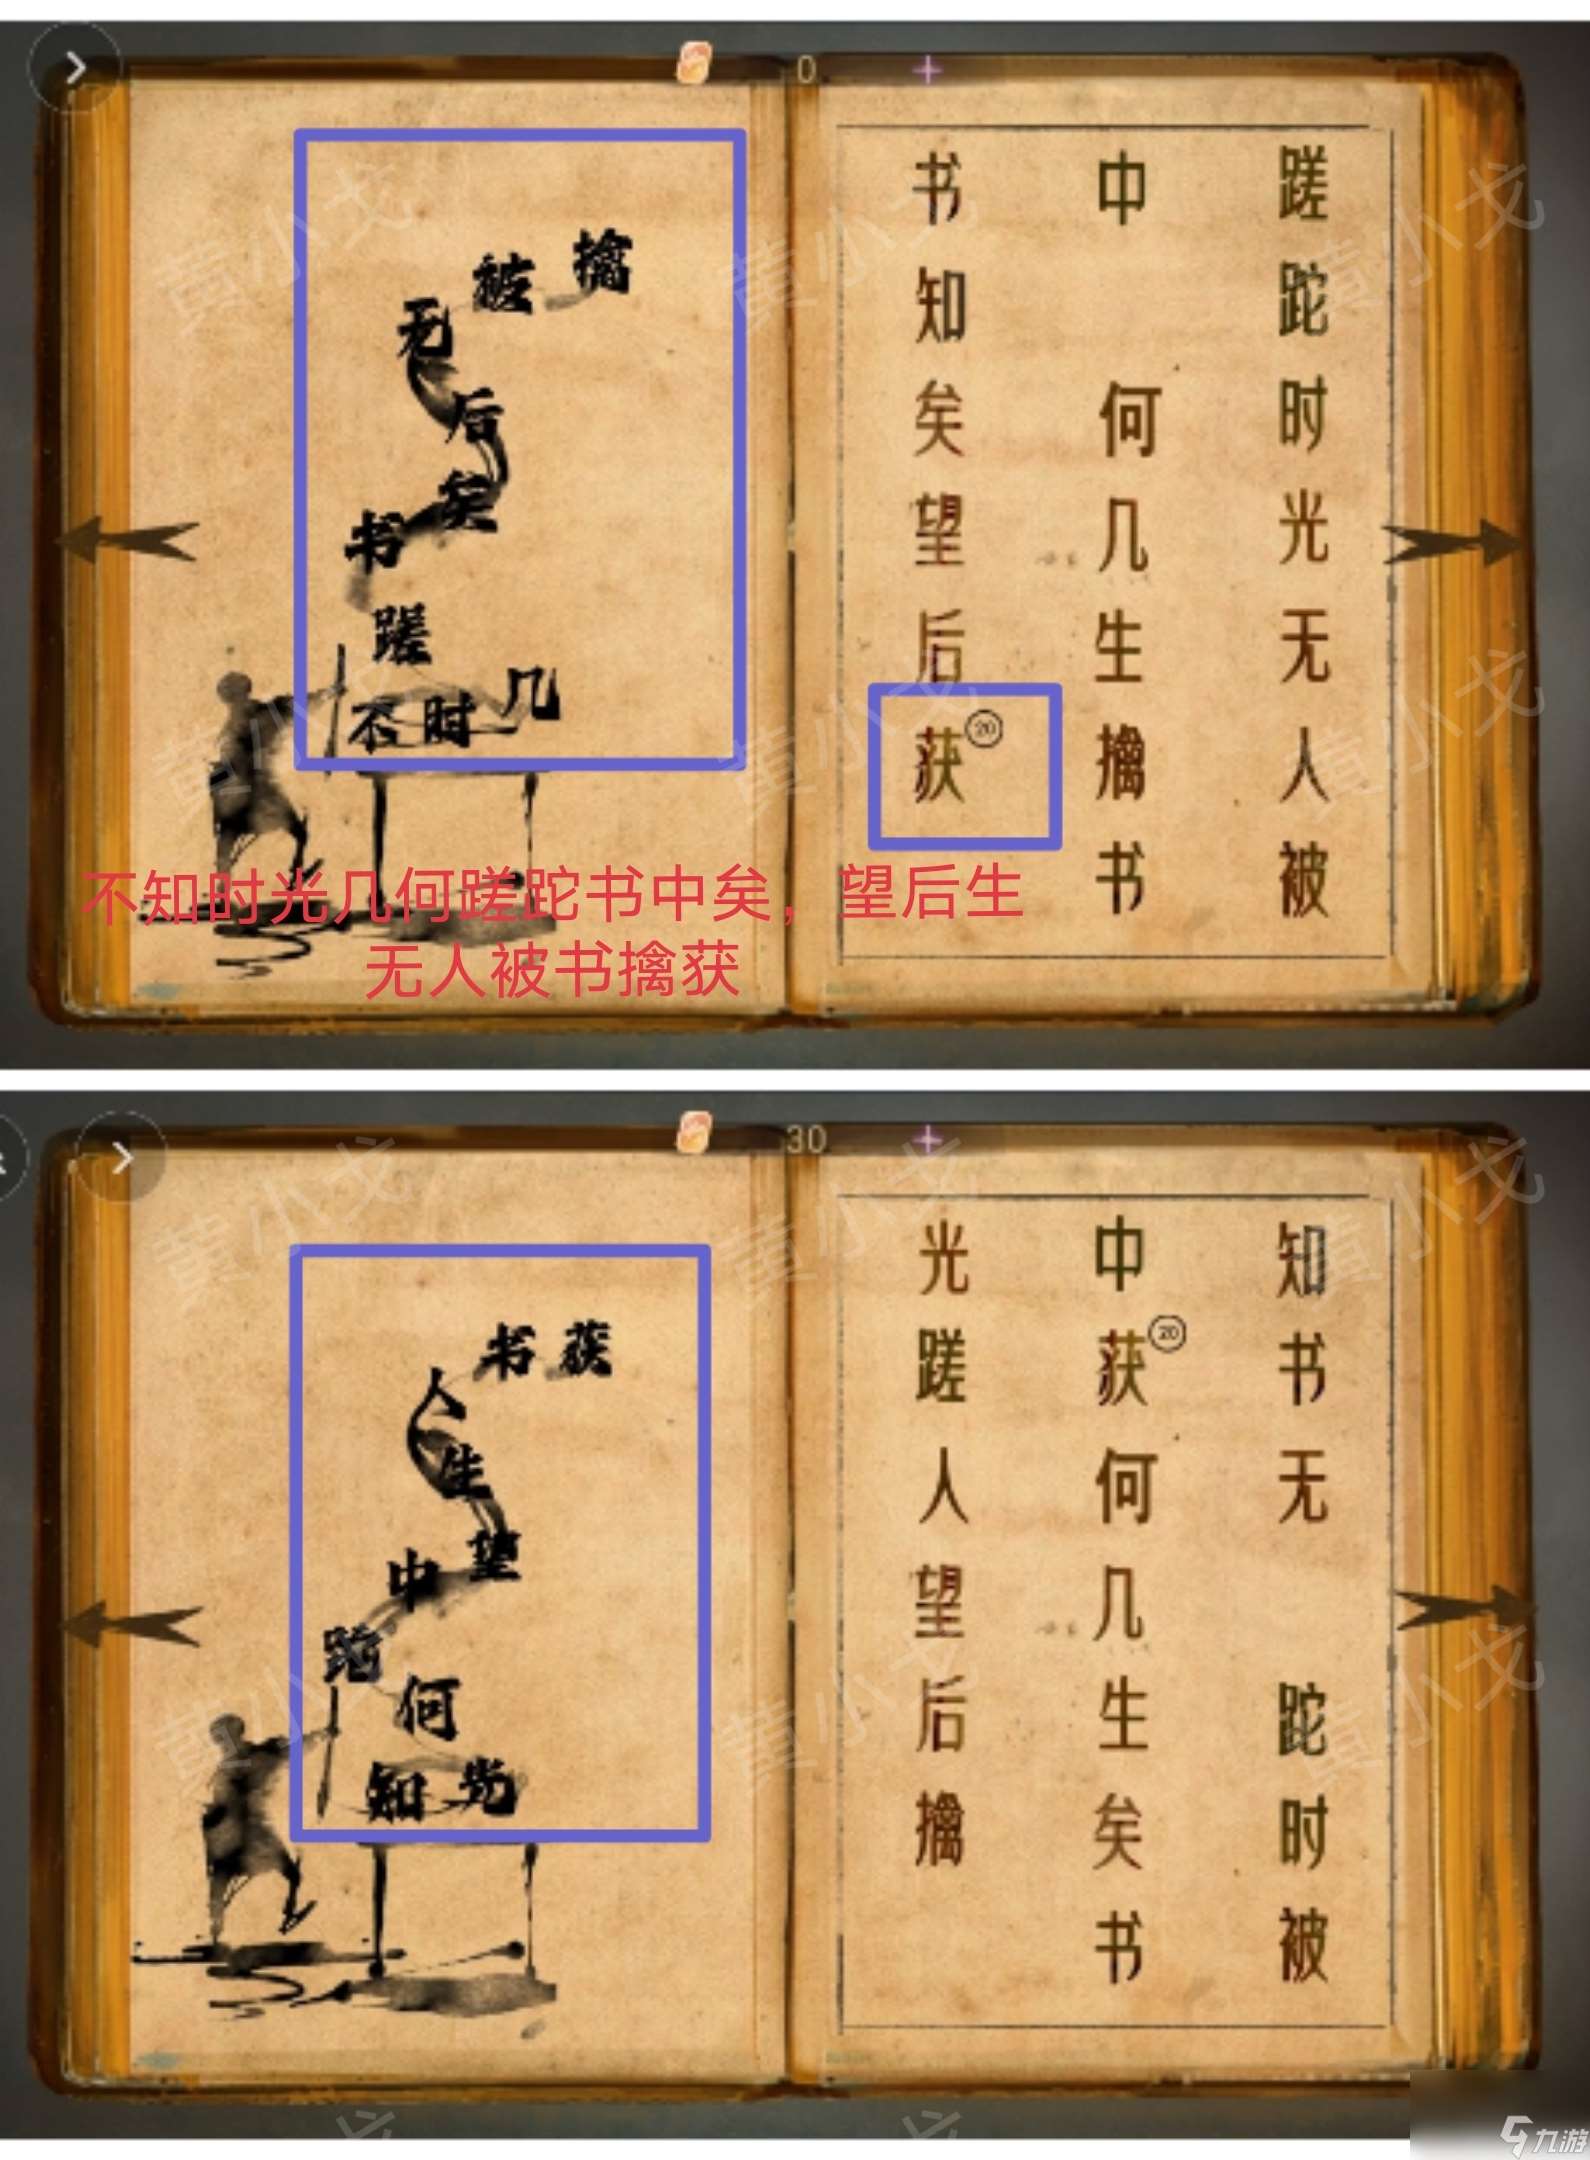 0
擒
被
无
后
矣
书
蹉
不时几
蹉跎时光无人被
中何几生擒书
书知矣望后获⑳
不知时光几何蹉跎书中矣，望后生
无人被书擒获
30
书获
人
生
望
中
跎
何
知光
知书无跎时被
中获⑳何几生矣书
光蹉人望后擒
黄小戈
九游